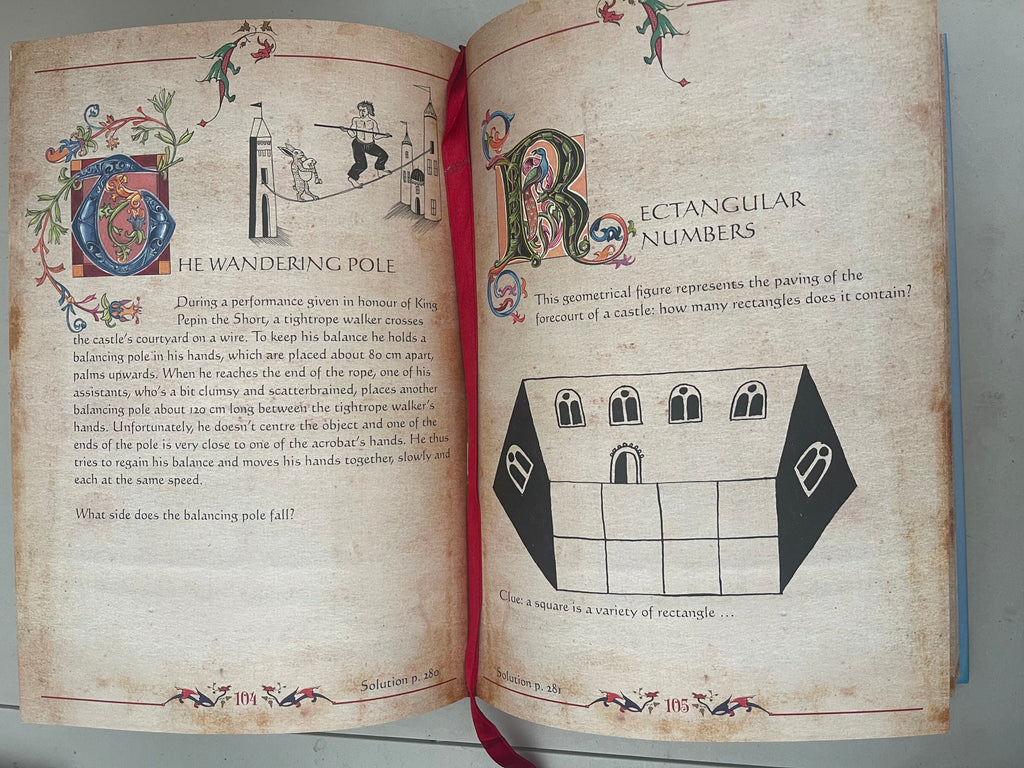 THE WANDERING POLE
During a performance given in honour of King
Pepin the Short, a tightrope walker crosses
the castle's courtyard on a wire. To keep his balance he holds a
balancing pole in his hands, which are placed about 80 cm apart,
palms upwards. When he reaches the end of the rope, one of his
assistants, who's a bit clumsy and scatterbrained, places another
balancing pole about 120 cm long between the tightrope walker's
hands. Unfortunately, he doesn't centre the object and one of the
ends of the pole is very close to one of the acrobat's hands. He thus
tries to regain his balance and moves his hands together, slowly and
each at the same speed.
What side does the balancing pole fall?
Solution p. 280
104
RECTANGULAR
NUMBERS
This geometrical figure represents the paving of the
forecourt of a castle: how many rectangles does it contain?
Clue: a square is a variety of rectangle ...
Solution p. 281
105